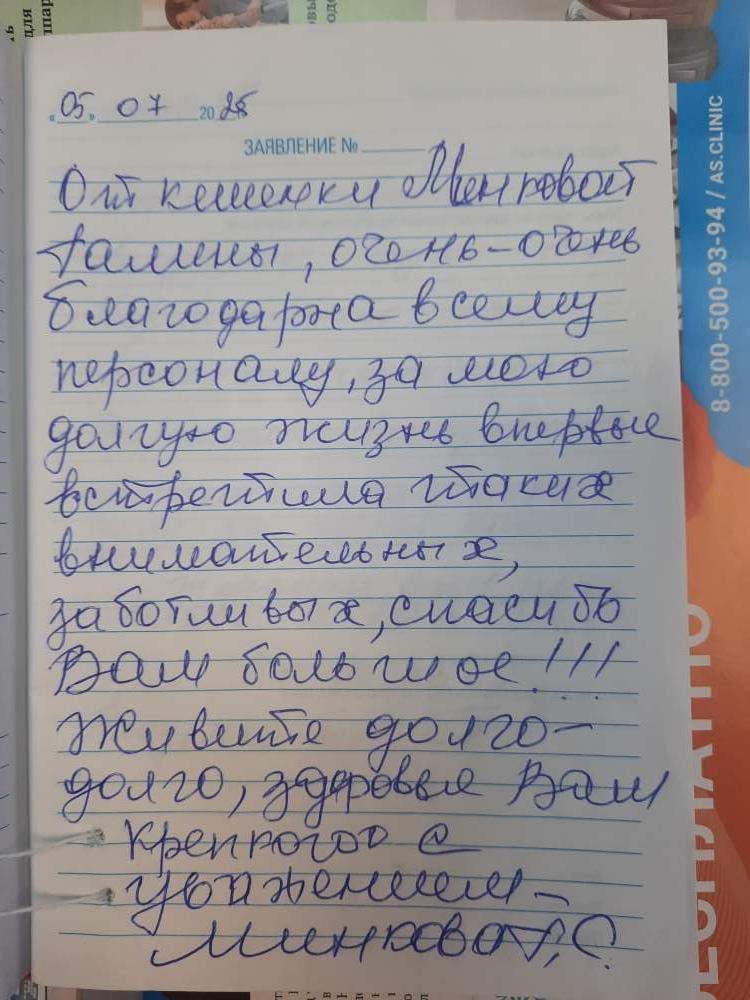 "05" 07 2025
ЗАЯВЛЕНИЕ № ______
От клиентки Минковой
Галины, очень-очень
благодарна всему
персоналу, за мою
долгую жизнь впервые
встретила таких
внимательных,
заботливых, спасибо
Вам большое!!!
Живите долго-
долго, здоровья Вам
крепкого с
уважением-
Минкова Г, С.
8-800-500-93-94 / AS.CLINIC